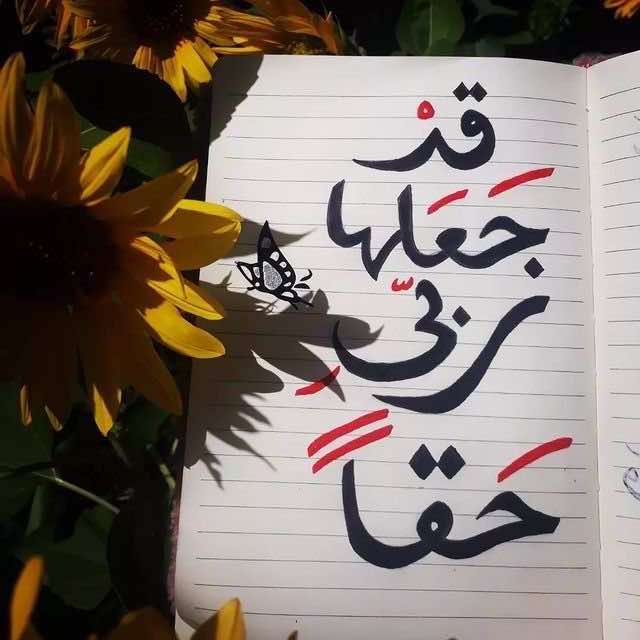 قدْ
جَعَلَها
رَبّي
حَقاً